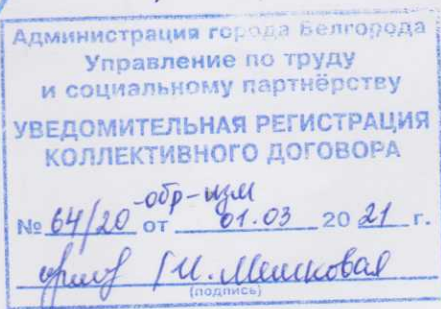 Администрация города Белгорода
Управление по труду
и социальному партнёрству
УВЕДОМИТЕЛЬНАЯ РЕГИСТРАЦИЯ
КОЛЛЕКТИВНОГО ДОГОВОРА
-обр-изм
№ 64/20 от 01.03 2021 г.
/И. Мешковая
(подпись)